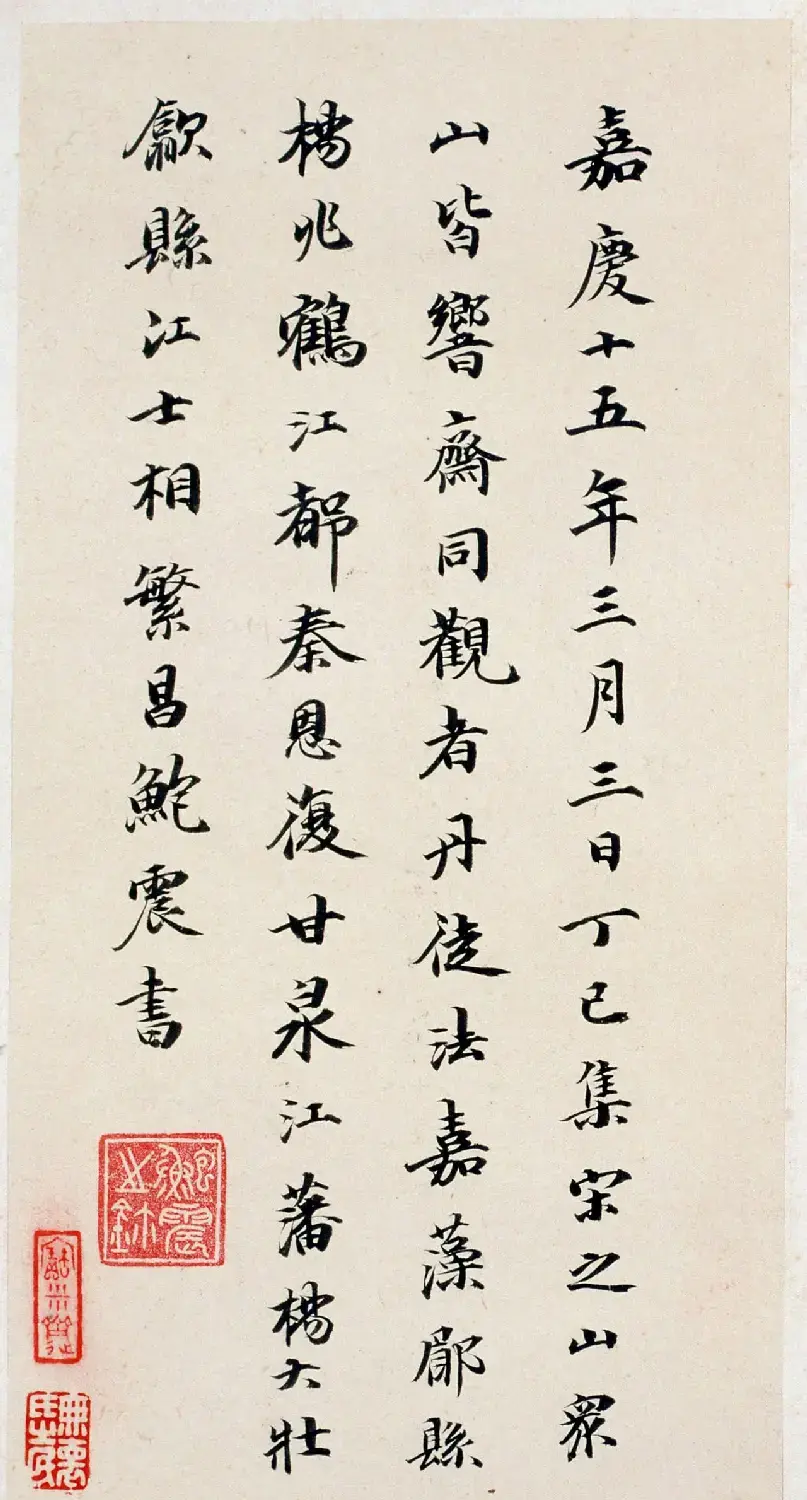 嘉慶十五年三月三日丁巳集宋之山眾
山皆響齋同觀者丹徒法嘉蓀郿縣
楊兆鶴江都秦恩復甘泉江藩楊大壯
歙縣江士相繁昌鮑震書